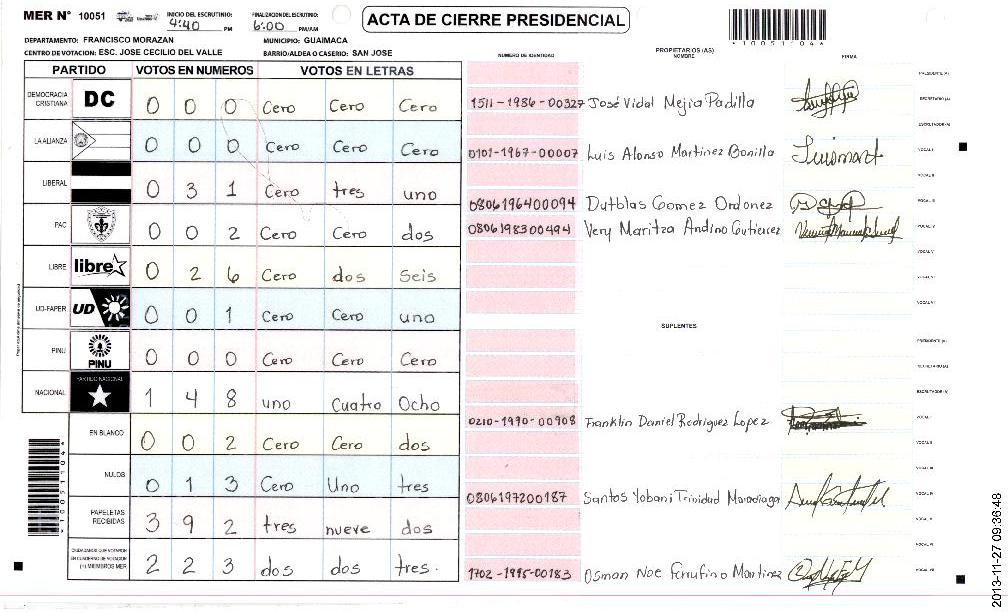 MER N° 10051
INICIO DEL ESCRUTINIO: 4:40 PM
FINALIZACION DEL ESCRUTINIO: 6:00 PM/AM
ACTA DE CIERRE PRESIDENCIAL
*1005104*
DEPARTAMENTO: FRANCISCO MORAZAN
MUNICIPIO: GUAIMACA
CENTRO DE VOTACION: ESC. JOSE CECILIO DEL VALLE
BARRIO/ALDEA O CASERIO: SAN JOSE
PARTIDO VOTOS EN NUMEROS VOTOS EN LETRAS
DEMOCRACIA CRISTIANA DC 0 0 0 Cero Cero Cero
LA ALIANZA 0 0 0 Cero Cero Cero
LIBERAL 0 3 1 Cero tres uno
PAC 0 0 2 Cero Cero dos
LIBRE libre 0 2 6 Cero dos Seis
UD-FAPER UD 0 0 1 Cero Cero uno
PINU PINU 0 0 0 Cero Cero Cero
NACIONAL PARTIDO NACIONAL 1 4 8 uno Cuatro Ocho
EN BLANCO 0 0 2 Cero Cero dos
NULOS 0 1 3 Cero Uno tres
PAPELETAS RECIBIDAS 3 9 2 tres nueve dos
CIUDADANOS QUE VOTARON EN CUADERNO DE VOTACION (+) MIEMBROS MER 2 2 3 dos dos tres.
*1005104*
NUMERO DE IDENTIDAD
PROPIETARIOS (AS)
NOMBRE
FIRMA
PRESIDENTE (A)
1511-1986-00327 José Vidal Mejia Padilla SECRETARIO (A)
ESCRUTADOR (A)
0101-1967-00007 Luis Alonso Martinez Bonilla VOCAL I
VOCAL II
0806196400094 Dutblas Gomez Ordonez VOCAL III
0806198300494 Very Maritza Andino Gutierrez VOCAL IV
VOCAL V
VOCAL VI
SUPLENTES
PRESIDENTE (A)
SECRETARIO (A)
ESCRUTADOR (A)
0210-1990-00908 Franklin Daniel Rodriguez Lopez VOCAL I
VOCAL II
VOCAL III
0806197200187 Santos Yobani Trinidad Maradiaga VOCAL IV
VOCAL V
VOCAL VI
1702-1995-00183 Osman Noe Ferrufino Martinez VOCAL VII
2013-11-27 09:36:48